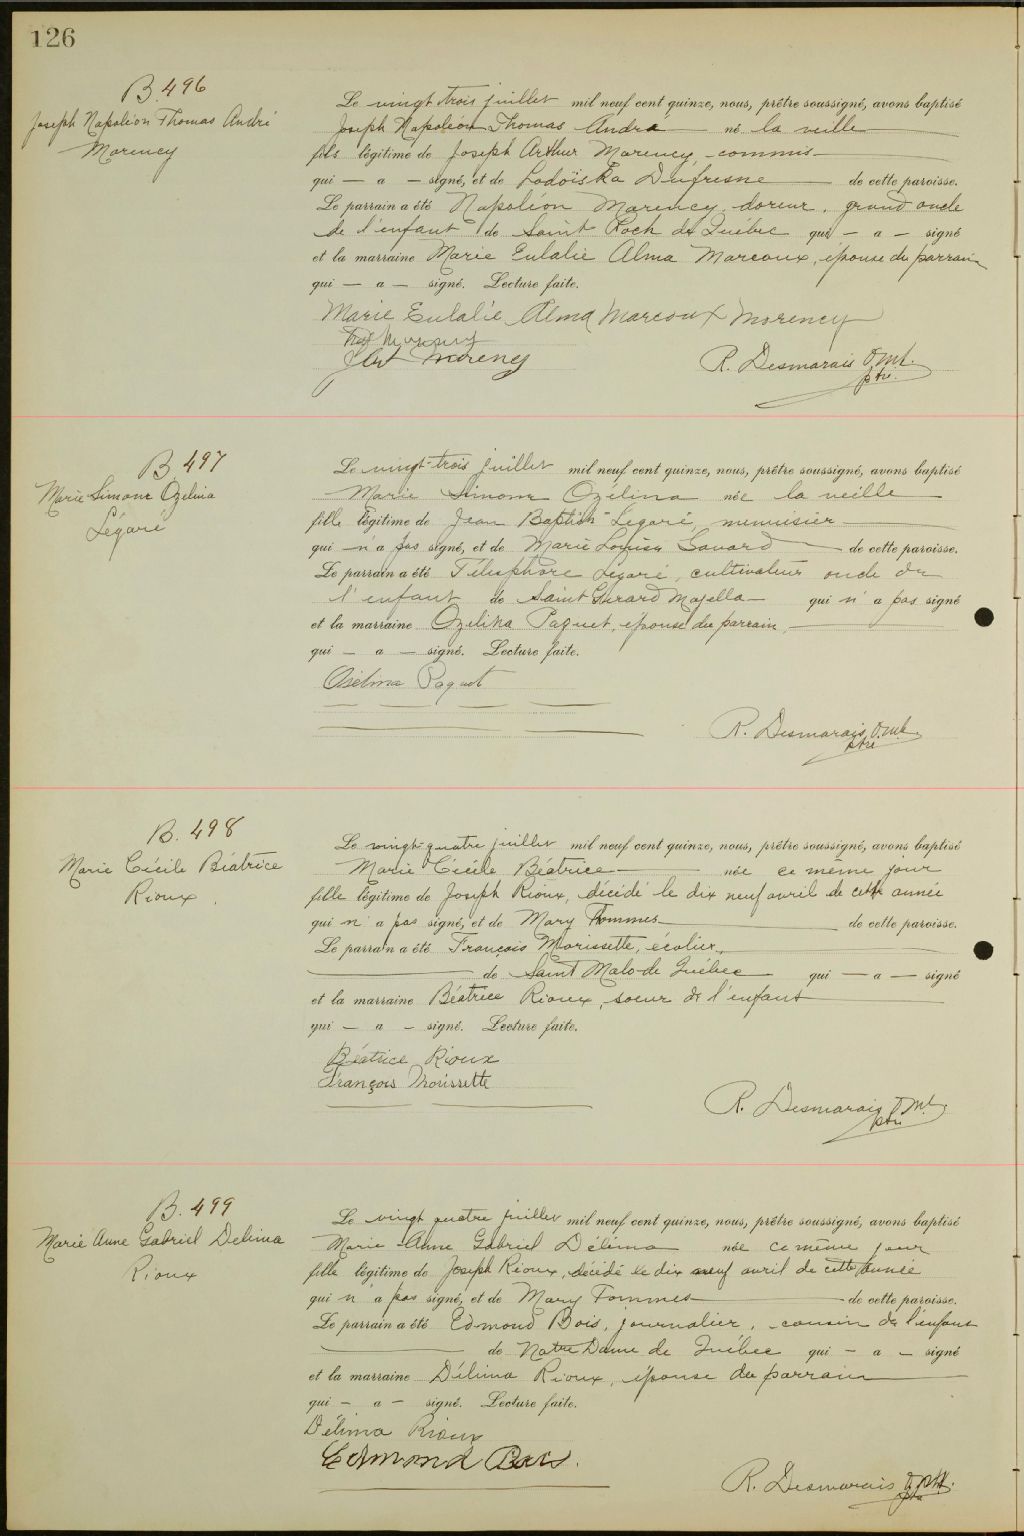 126
B. 496
Joseph Napoléon Thomas André
Morency
Le vingt trois juillet mil neuf cent quinze, nous, prêtre soussigné, avons baptisé
Joseph Napoléon Thomas André né la veille
fils légitime de Joseph Arthur Morency, commis
qui — a — signé, et de Lodoïska Dufresne de cette paroisse.
Le parrain a été Napoléon Morency, doreur, grand oncle
de l'enfant de Saint Roch de Québec qui — a — signé
et la marraine Marie Eulalie Alma Marcoux, épouse du parrain
qui — a — signé. Lecture faite.
Marie Eulalie Alma Marcoux Morency
Morency
J Art Morency
R. Desmarais O.M.I.
ptre
B 497
Marie Simone Ozélina
Légaré
Le vingt-trois juillet mil neuf cent quinze, nous, prêtre soussigné, avons baptisé
Marie Simone Ozélina née la veille
fille légitime de Jean Baptiste Légaré, menuisier
qui n'a pas signé, et de Marie Louise Savard de cette paroisse.
Le parrain a été Télesphore Légaré, cultivateur oncle de
l'enfant de Saint Gérard Majella qui n'a pas signé
et la marraine Ozelina Paquet, épouse du parrain,
qui — a — signé. Lecture faite.
Osélina Paquet
R. Desmarais, O.M.I.
ptre
B. 498
Marie Cécile Béatrice
Rioux.
Le vingt-quatre juillet mil neuf cent quinze, nous, prêtre soussigné, avons baptisé
Marie Cécile Béatrice née ce même jour
fille légitime de Joseph Rioux, décédé le dix neuf avril de cette année
qui n'a pas signé, et de Mary Tommes de cette paroisse.
Le parrain a été François Morissette, écolier,
de Saint Malo de Québec qui — a — signé
et la marraine Béatrice Rioux, soeur de l'enfant
qui — a — signé. Lecture faite.
Béatrice Rioux
François Morissette
R. Desmarais O.M.I.
ptre
B. 499
Marie Anne Gabriel Delima
Rioux
Le vingt quatre juillet mil neuf cent quinze, nous, prêtre soussigné, avons baptisé
Marie Anne Gabriel Délima née ce même jour
fille légitime de Joseph Rioux, décédé le dix neuf avril de cette année
qui n'a pas signé, et de Mary Tommes de cette paroisse.
Le parrain a été Edmond Bois, journalier, cousin de l'enfant
de Notre Dame de Québec qui — a — signé
et la marraine Délima Rioux, épouse du parrain
qui — a — signé. Lecture faite.
Délima Rioux
Edmond Bois.
R. Desmarais O.M.I.
ptre